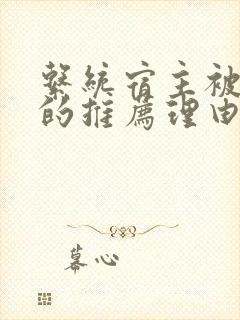 繫統宿主被
的推薦理由
暮心